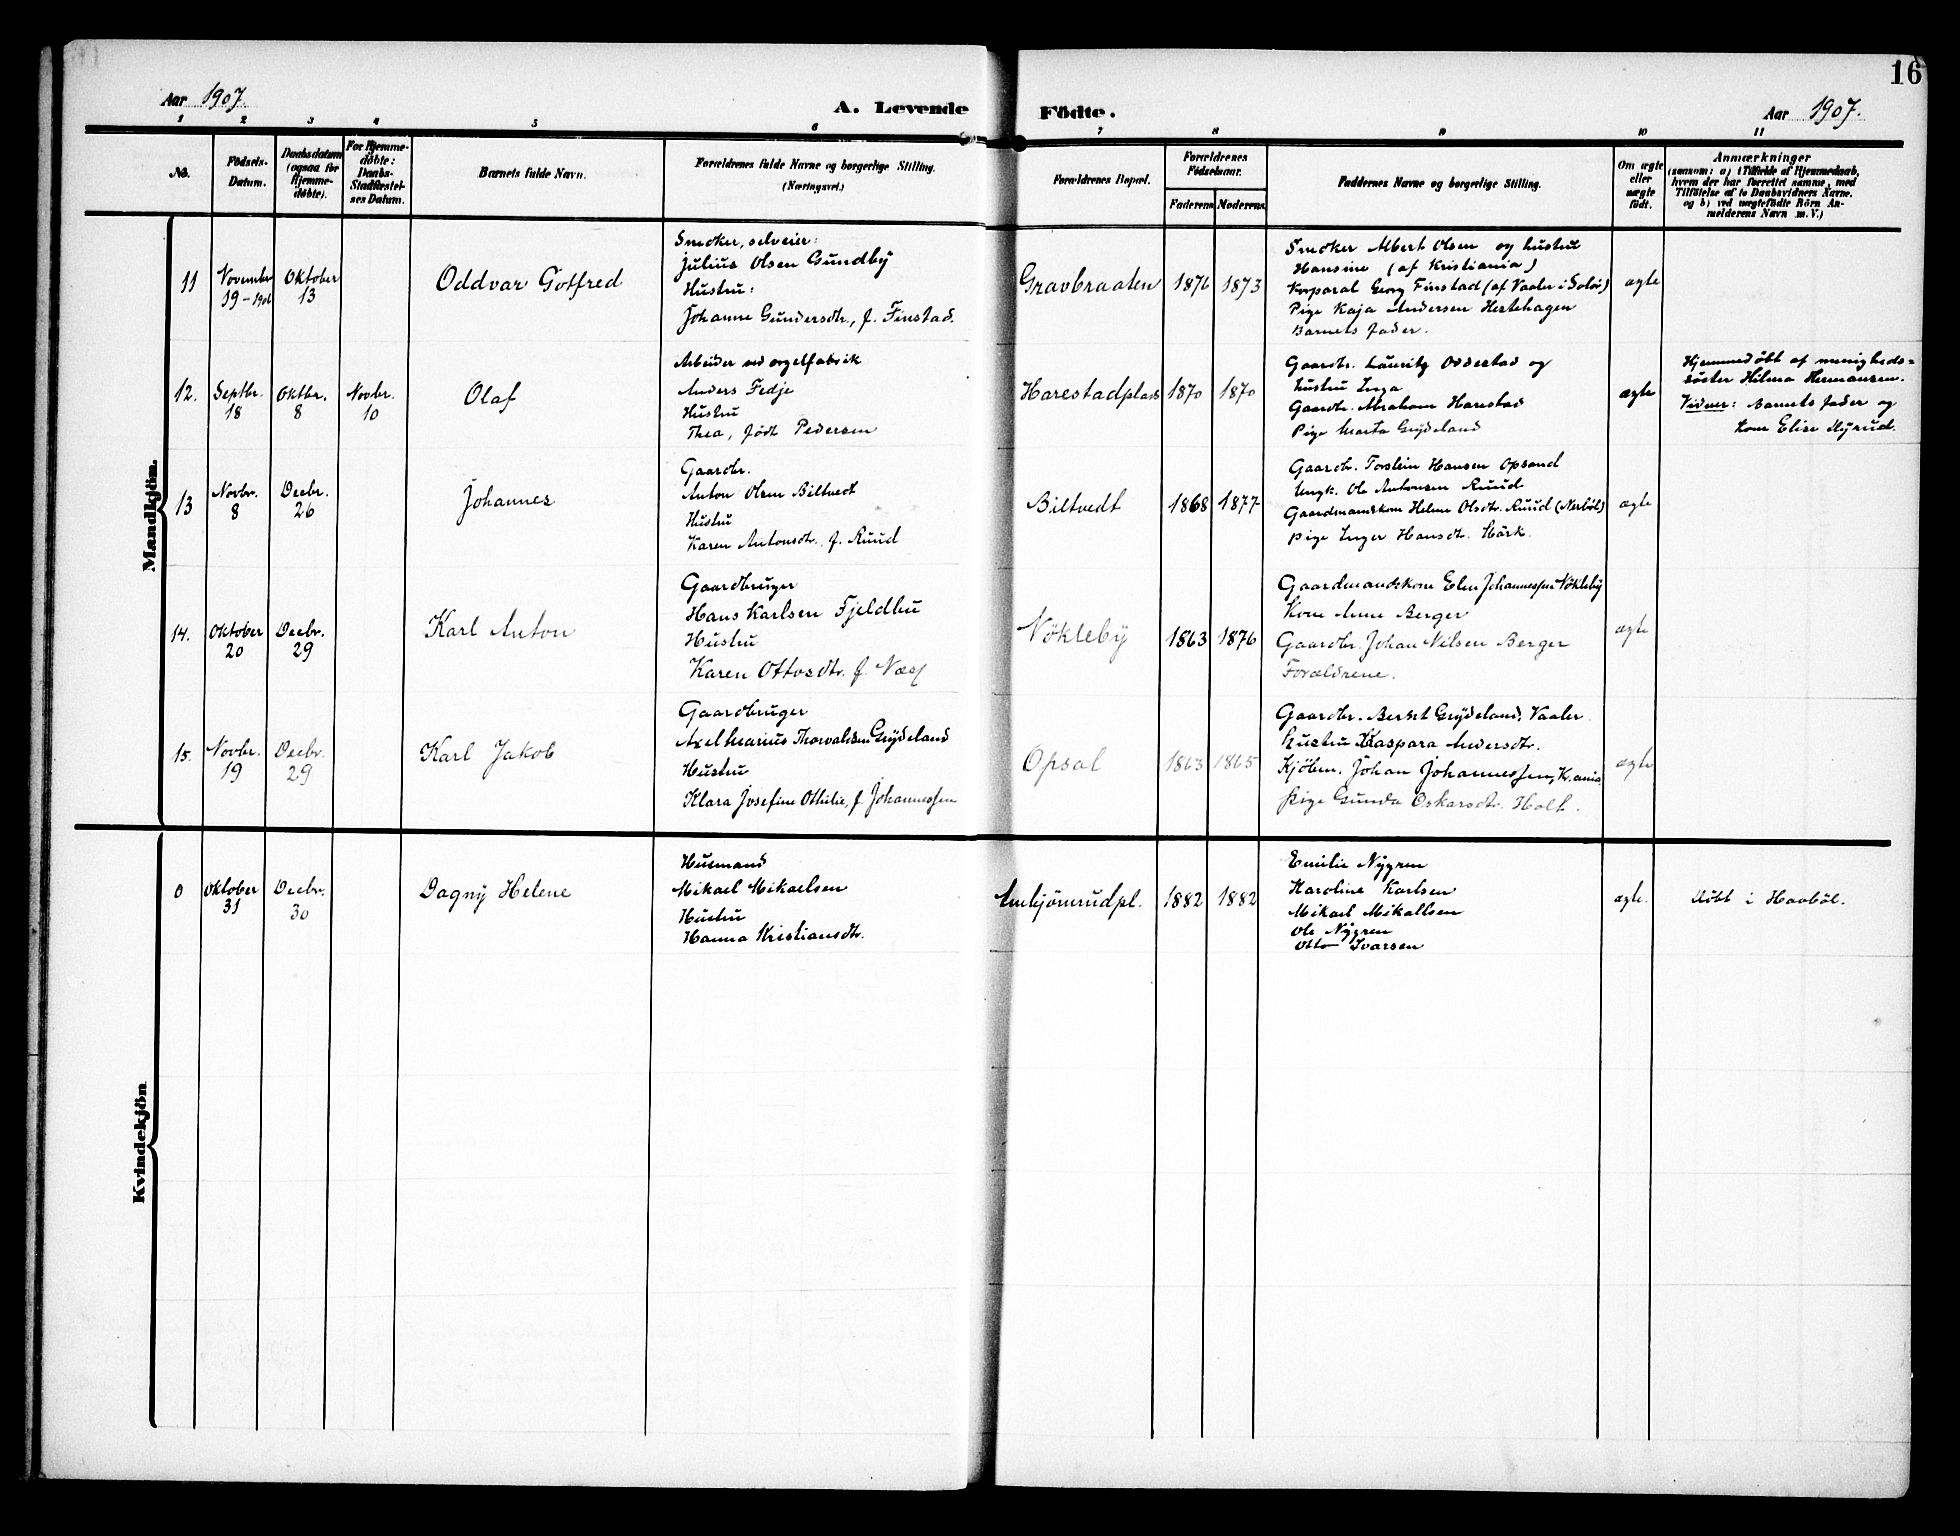 16
Aar 1907.
A. Levende Födte.
Aar 1907.
1 2 3 4 5 6 7 8 9 10 11
No.
Födsels-
Datum.
Daabsdatum
(ogsaa for
Hjemme-
döbte).
For Hjemme-
döbte:
Daabs-
Stadfæstel-
ses Datum.
Barnets fulde Navn.
Forældrenes fulde Navne og borgerlige Stilling.
(Næringsvei.)
Forældrenes Bopæl.
Forældrenes
Födselsaar.
Faderens. Moderens.
Faddernes Navne og borgerlige Stilling.
Om ægte
eller
uægte
født.
Anmærkninger
(saasom: a) i Tilfælde af Hjemmedaab,
hvem der har forrettet samme, med
Tilföielse af to Daabsvidners Navne.
og b) ved uægtefödte Börn An-
melderens Navn m. V.)
Mandkjön.
11
November
19 - 1906
Oktober
13
Oddvar Gotfred
Snedker, selveier:
Julius Olsen Gundby
Hustru:
Johanne Gundersdtr., f. Finstad.
Gravbraaten
1876
1873
Snedker Albert Olsen og hustru
Hansine (af Kristiania)
Korporal Georg Finstad (af Vaaler i Solör)
Pige Kaja Andersen Hestehagen
Barnets fader.
ægte
12.
Septbr.
18
Oktbr.
8
Novbr.
10
Olaf
Arbeider ved orgelfabrik
Anders Fedje
Hustru
Thea, født Pedersen
Harestadplads
1870
1870
Gaardbr. Lauritz Oddestad og
hustru Inga
Gaardbr. Abraham Harestad
Pige Marta Grydeland
ægte
Hjemmedöbt af menigheds-
söster Hilma Hermansen.
Vidner: Barnets fader og
kone Elise Myrud.
13
Novbr.
8
Decbr.
26
Johannes
Gaardbr.
Anton Olsen Biltvedt
Hustru
Karen Antonsdtr. f. Ruud
Biltvedt
1868
1877
Gaardbr. Torstein Hansen Opsand
Ungk. Ole Antonsen Ruud
Gaardmandskone Helene Olsdtr. Ruud (Nerböl)
Pige Inger Hansdtr. Störk.
ægte
14.
Oktober
20
Decbr.
29
Karl Anton
Gaardbruger
Hans Karlsen Fjeldhu
Hustru
Karen Ottosdtr. f. Næss
Nökleby
1863
1876
Gaardmandskone Elen Johannessen Nökleby
Kone Anne Berger
Gaardbr. Johan Nilsen Berger
Forældrene.
ægte
15.
Novbr.
19
Decbr.
29
Karl Jakob
Gaardbruger
Axel Marius Thorvaldsen Grydeland
Hustru
Klara Josefine Othilie, f. Johannessen
Opsal
1863
1865
Gaardbr. Bernt Grydeland, Vaaler
Hustru Kaspara Andersdtr.
Kjöbm. Johan Johannessen, Kr.ania
Pige Gunda Oskarsdtr. Holt.
ægte
Kvindekjön
0
Oktober
31
Decbr.
30
Dagny Helene
Husmand
Mikael Mikaelsen
Hustru
Hanna Kristiansdtr.
1882
1882
Emilie Nygren
Karoline Karlsen
Mikael Mikallsen
Ole Nygren
Otto Ivarsen
ægte.
Döbt i Haabøl.